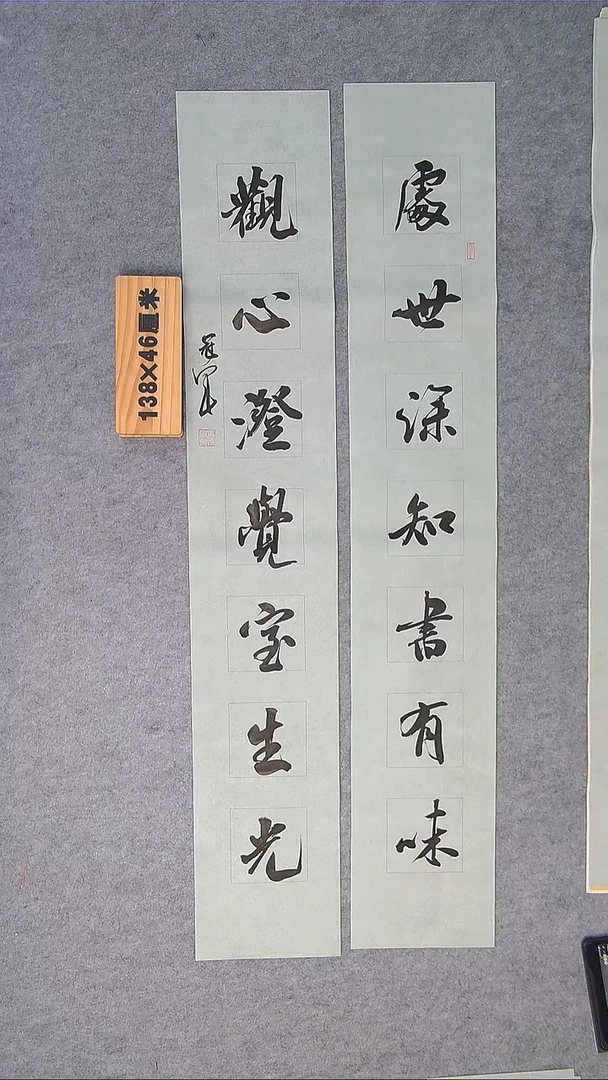 處世深知書有味
觀心澄覺室生光
冠軍
138×46厘米